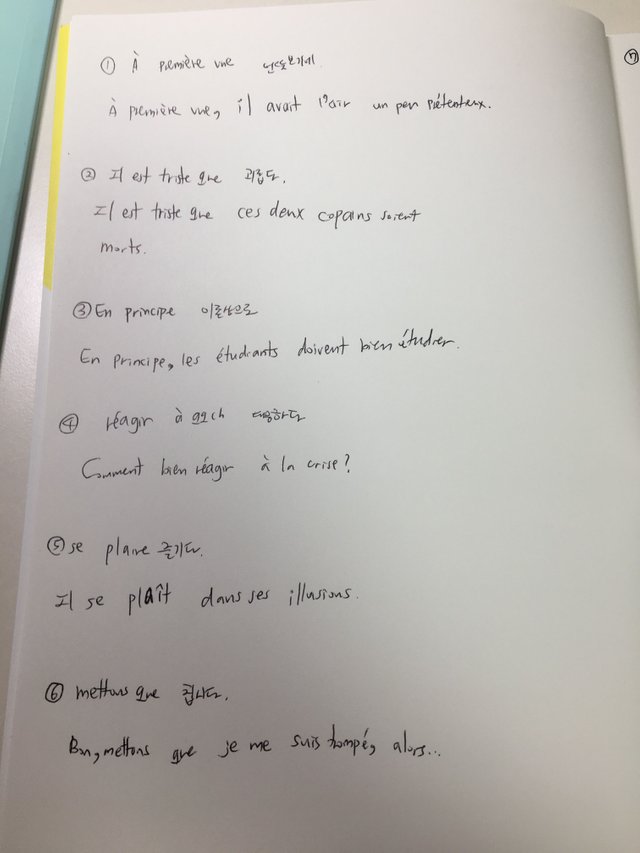 ① À première vue 언뜻보기에
À première vue, il avait l'air un peu prétentieux.
② Il est triste que 괴롭다.
Il est triste que ces deux copains soient
morts.
③ En principe 이론상으로
En principe, les étudiants doivent bien étudier.
④ réagir à qqch 대응하다
Comment bien réagir à la crise?
⑤ se plaire 즐기다.
Il se plaît dans ses illusions.
⑥ mettons que
Bon, mettons que je me suis trompé, alors...
⑦